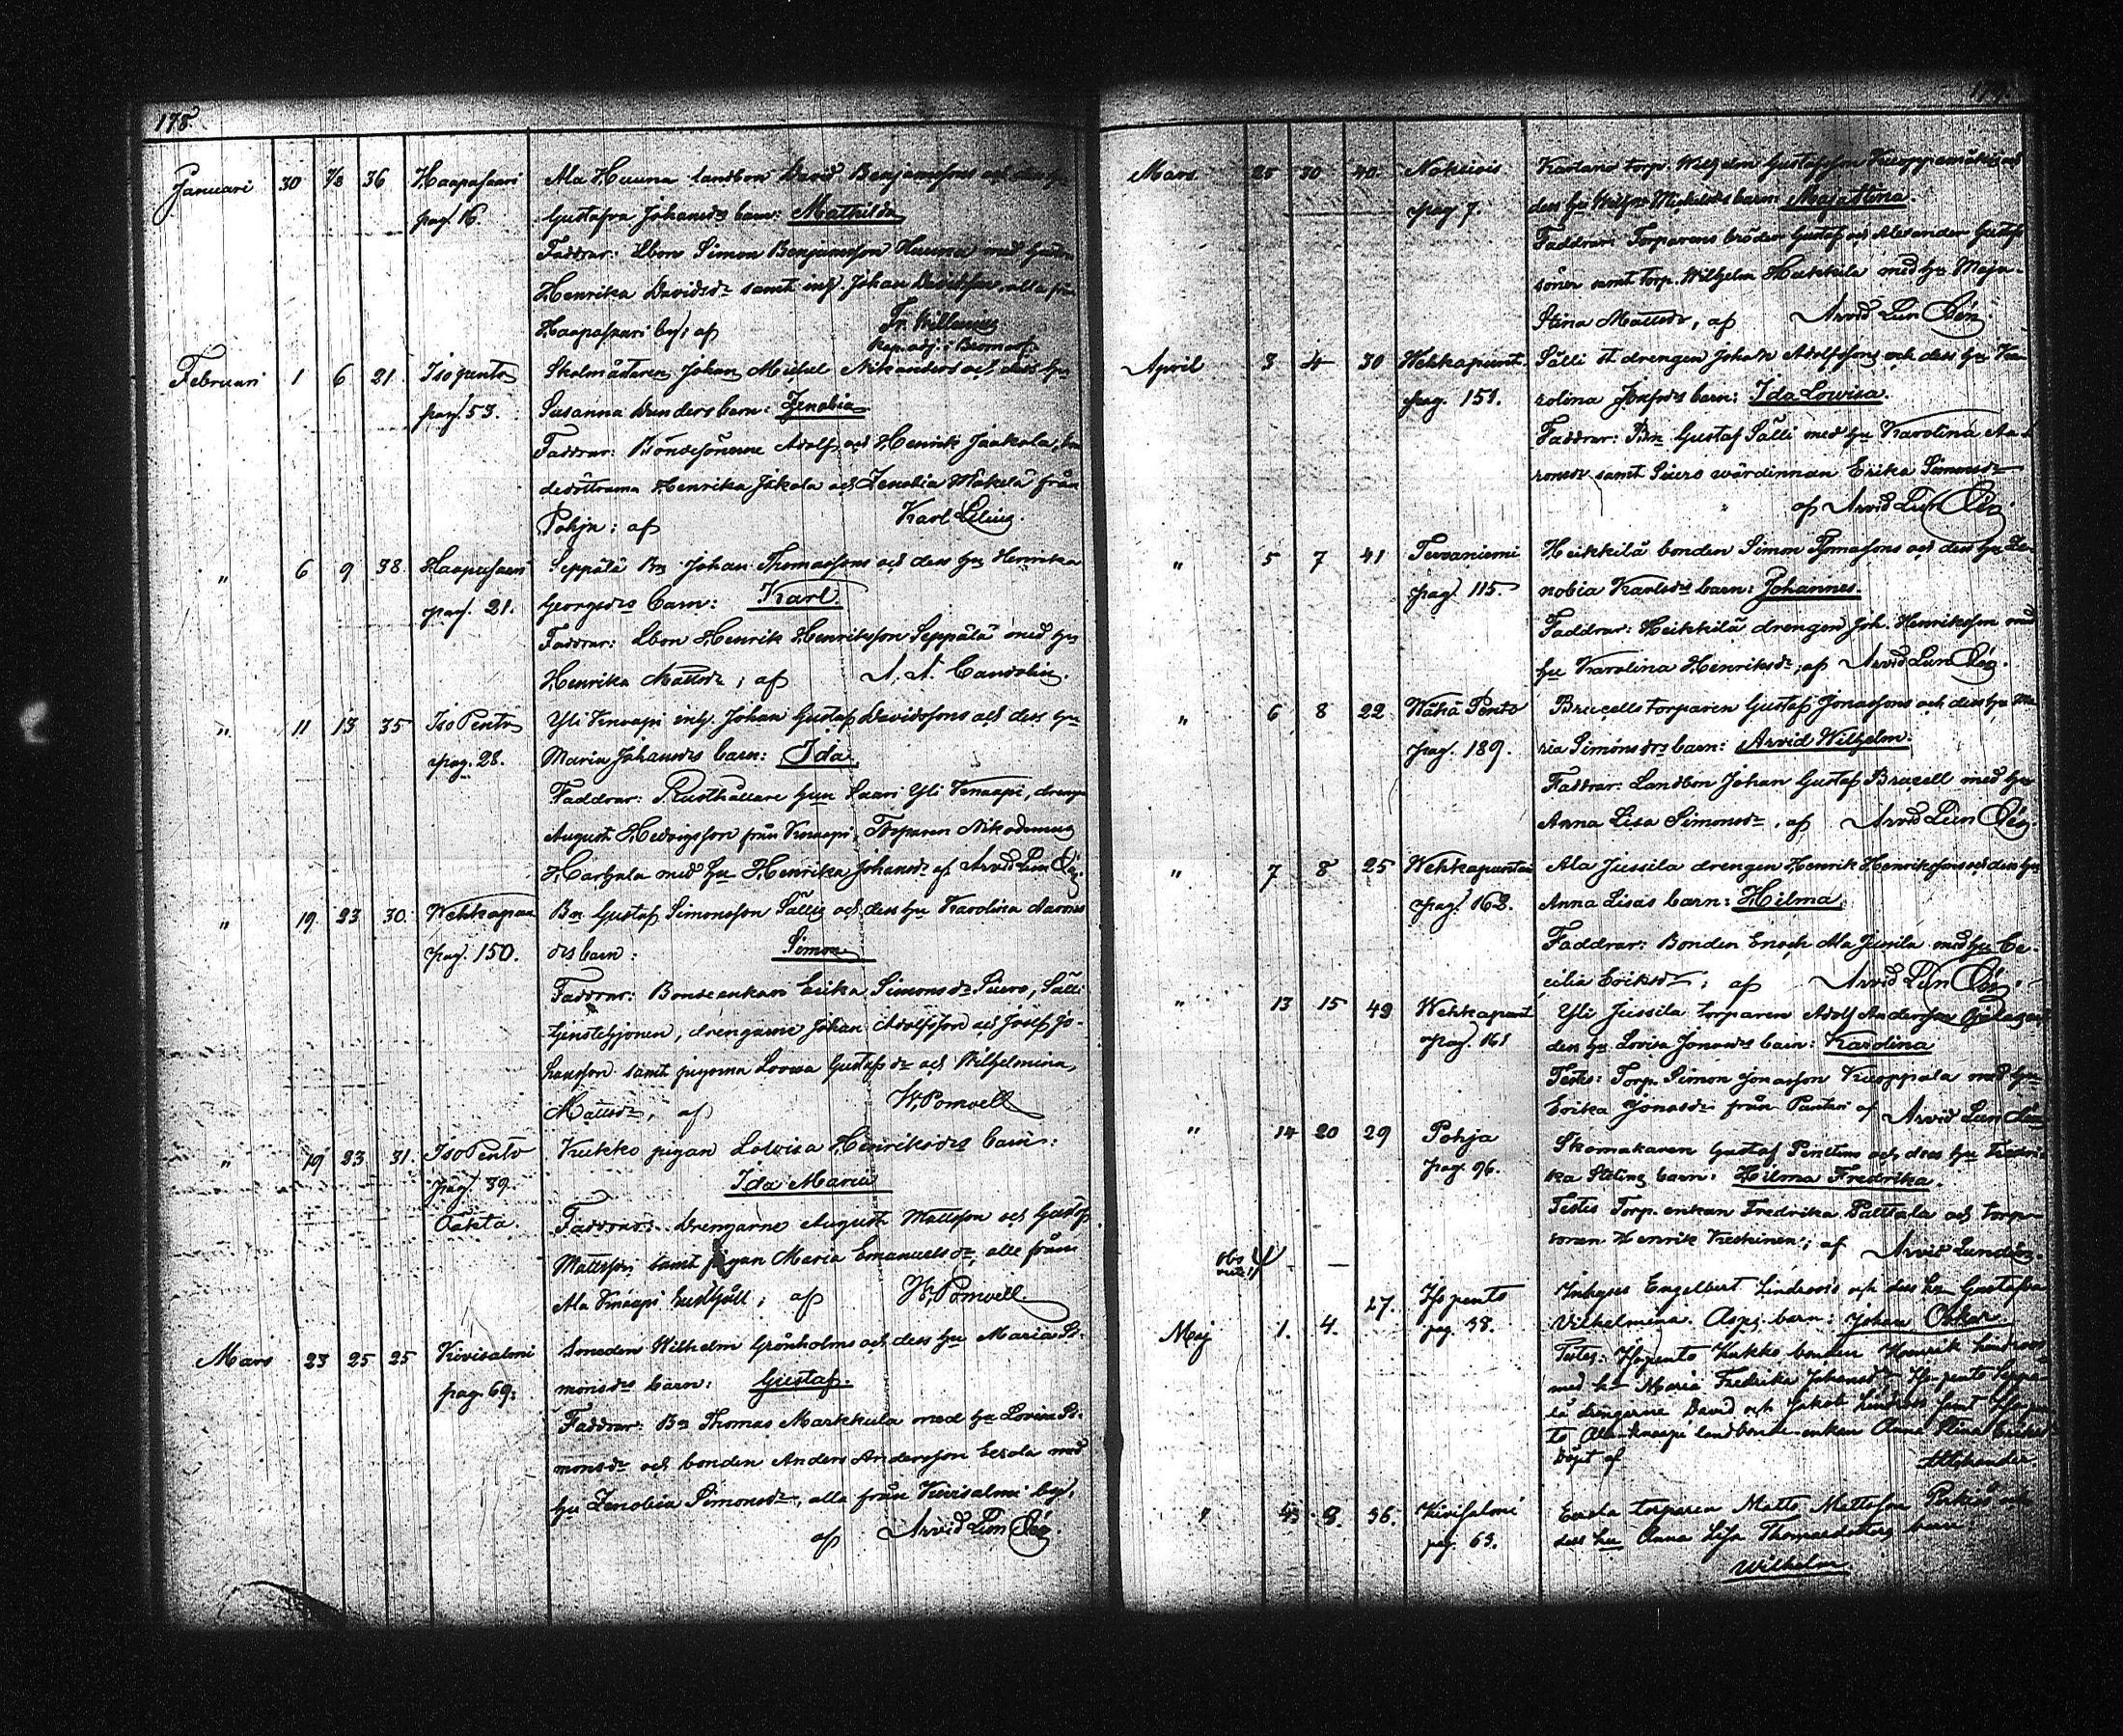 178.
Januari 30 1/2 36 Haapasaari Ala Huuna landbon David Benjaminsons och
pag 16. Gustafva Johansdrs barn: Mathilda
Faddrar: Lbon Simon Benjaminsson Huuna med hustru
Henrika Davidsdr samt inhs. Johan Davidsson, alla från
Haapasaari by; af Fr. Willenius
Kap. adj. i Bromarf
Februari 1 6 21 Isopento Skolmästaren Johan Michel Nikanders och dess hu
pag. 53. Susanna Dunders barn: Zenobia
Faddrar: Bondesönerne Adolf och Henrik Jaakola,
dedöttrarna Henrika Jakola och Zenobia Mäkelä från
Pohja; af Karl Lilius.
" 6 9 38 Haapasaari Seppälä Bn Johan Thomassons och dess hu Henrika
pag. 21. Georgsdrs barn: Karl.
Faddrar: Lbon Henrik Henriksson Seppälä med hu
Henrika Mattsdr; af A. A. Candolin.
" 11 13 35 Iso Pento Yli Knaapi inhs. Johan Gustaf Davidssons och dess hu
pag. 28. Maria Johansdrs barn: Ida.
Faddrar: Rusthållare Saari Yli Knaapi, dreng
August Hedvigsson från Knaapi, Torparen Nikodemus
Harhala med hu Henrika Johansdr af Arvid Lundén.
" 19 23 30 Wehkapun Bn Gustaf Simonsson Sällis och dess hu Karolina Aarons
pag. 150. drs barn: Simon
Faddrar: Bondeenkan Erika Simonsdr Siiero, Sälli
tjenstehjonen, drengarne Johan Adolfsson och Josef Jo-
hansson samt pigorna Lovisa Gustafsdr och Wilhelmina
Mattsdr, af W. Pomoell
" 19 23 31. Iso Pento Kukko pigan Lovisa Henriksdrs barn:
pag. 39. Ida Maria
Oäkta. Faddrar: drengarne August Mattsson och Gustaf
Mattsson samt pigan Maria Emanuelsdr, alla från
Ala Knaapi rusthåll; af W. Pomoell.
Mars 23 25 25 Kivisalmi Smeden Wilhelm Grönholms och dess hu Maria Si-
pag. 69. monsdrs barn: Gustaf.
Faddrar: Bn Thomas Markkula med hu Lovisa Si-
monsdr och bonden Anders Andersson Eerola med
hu Zenobia Simonsdr, alla från Kivisalmi by,
af Arvid Lundén.
179.
Mars 25 30 40. Nokiois torp. Wilhelm Gustafsson
pag 7. dess hu barn: Maja Stina.
Faddrar: Torparens bröder Gustaf och Alexander Gustafs
söner samt torp. Wilhelm Heikkila med hu Maja
Stina Mattsdr, af Arvid Lundén.
April 3 4 30 Wehkapunt. Sälli st. drengen Johan Adolfssons och dess hu Ka-
pag. 151. rolina barn: Ida Lowisa.
Faddrar: Bn Gustaf Sälli med hu Karolina Aa-
ronsdr samt Siiero wärdinnan Erika Simonsdr
af Arvid Lundén
" 5 7 41 Tervaniemi Heikkilä bonden Simon Thomassons och dess hu Ze-
pag. 115. nobia Karlsdrs barn: Johannes.
Faddrar: Heikkilä drengen Joh. Henriksson med
hu Karolina Henriksdr, af Arvid Lundén.
" 6 8 22 Wähä Pento Brucells torparen Gustaf Jonassons och dess hu Ma-
pag. 189. ria Simonsdrs barn: Arvid Wilhelm.
Faddrar: Landbon Johan Gustaf Brucell med hu
Anna Lisa Simonsdr, af Arvid Lundén.
" 7 8 25 Wehkapuntai Ala Jussila drengen Henrik Henrikssons och dess hu
pag. 162. Anna Lisas barn: Hilma.
Faddrar: Bonden Enoch Ala Jussila med hu Ce-
cilia Eriksdr; af Arvid Lundén.
" 13 15 49 Wehkapunt Yli Jussila torparen Adolf Andersson
pag. 161 dess hu Lovisa Jonasdrs barn: Karolina
Testes: Torp. Simon Jonasson Kuoppala med hu
Erika Jonasdr från Puntari af Arvid Lundén
" 14 20 29 Pohja Skomakaren Gustaf Penttins och dess hu Fredri-
pag. 96. ka barn: Hilma Fredrika.
Testes Torp. enkan Fredrika Pälttala och torpa-
soran Henrik Keskinen; af Arvid Lundén.
obs
Maj 1. 4. 27. Isopento Inhyses Engelbert Lindroos och dess hu Gustafva
pag. 38. Vilhelmina barn: Johan Oskar
Testes: Isopento Kukko bonden Henrik Lindroos
med hu Maria Fredrika Johansdr Isopento Seppä-
lä drengarne David och Jakob Lindroos samt Isopen
to Ala-knaapi landbonde-enkan Anna Stina
döpt af
" 4 8. 36. Kivisalmi Eerola torparen Matts Mattsson och
pag. 63. dess hu Anna Lisa Thomasdotters barn
Wilhelm